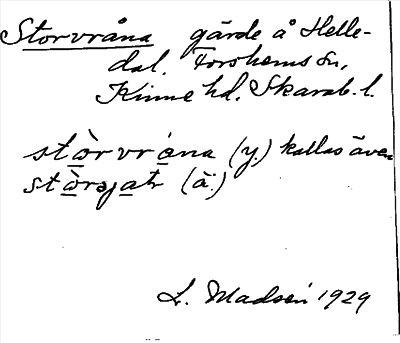 Storvråna gärde å Helle-
dal. Forshems sn,
Kinne hd. Skarab. l.
stòrvråna (y.) kallas även
stòrsjatr (ä.)
L. Madsén 1929